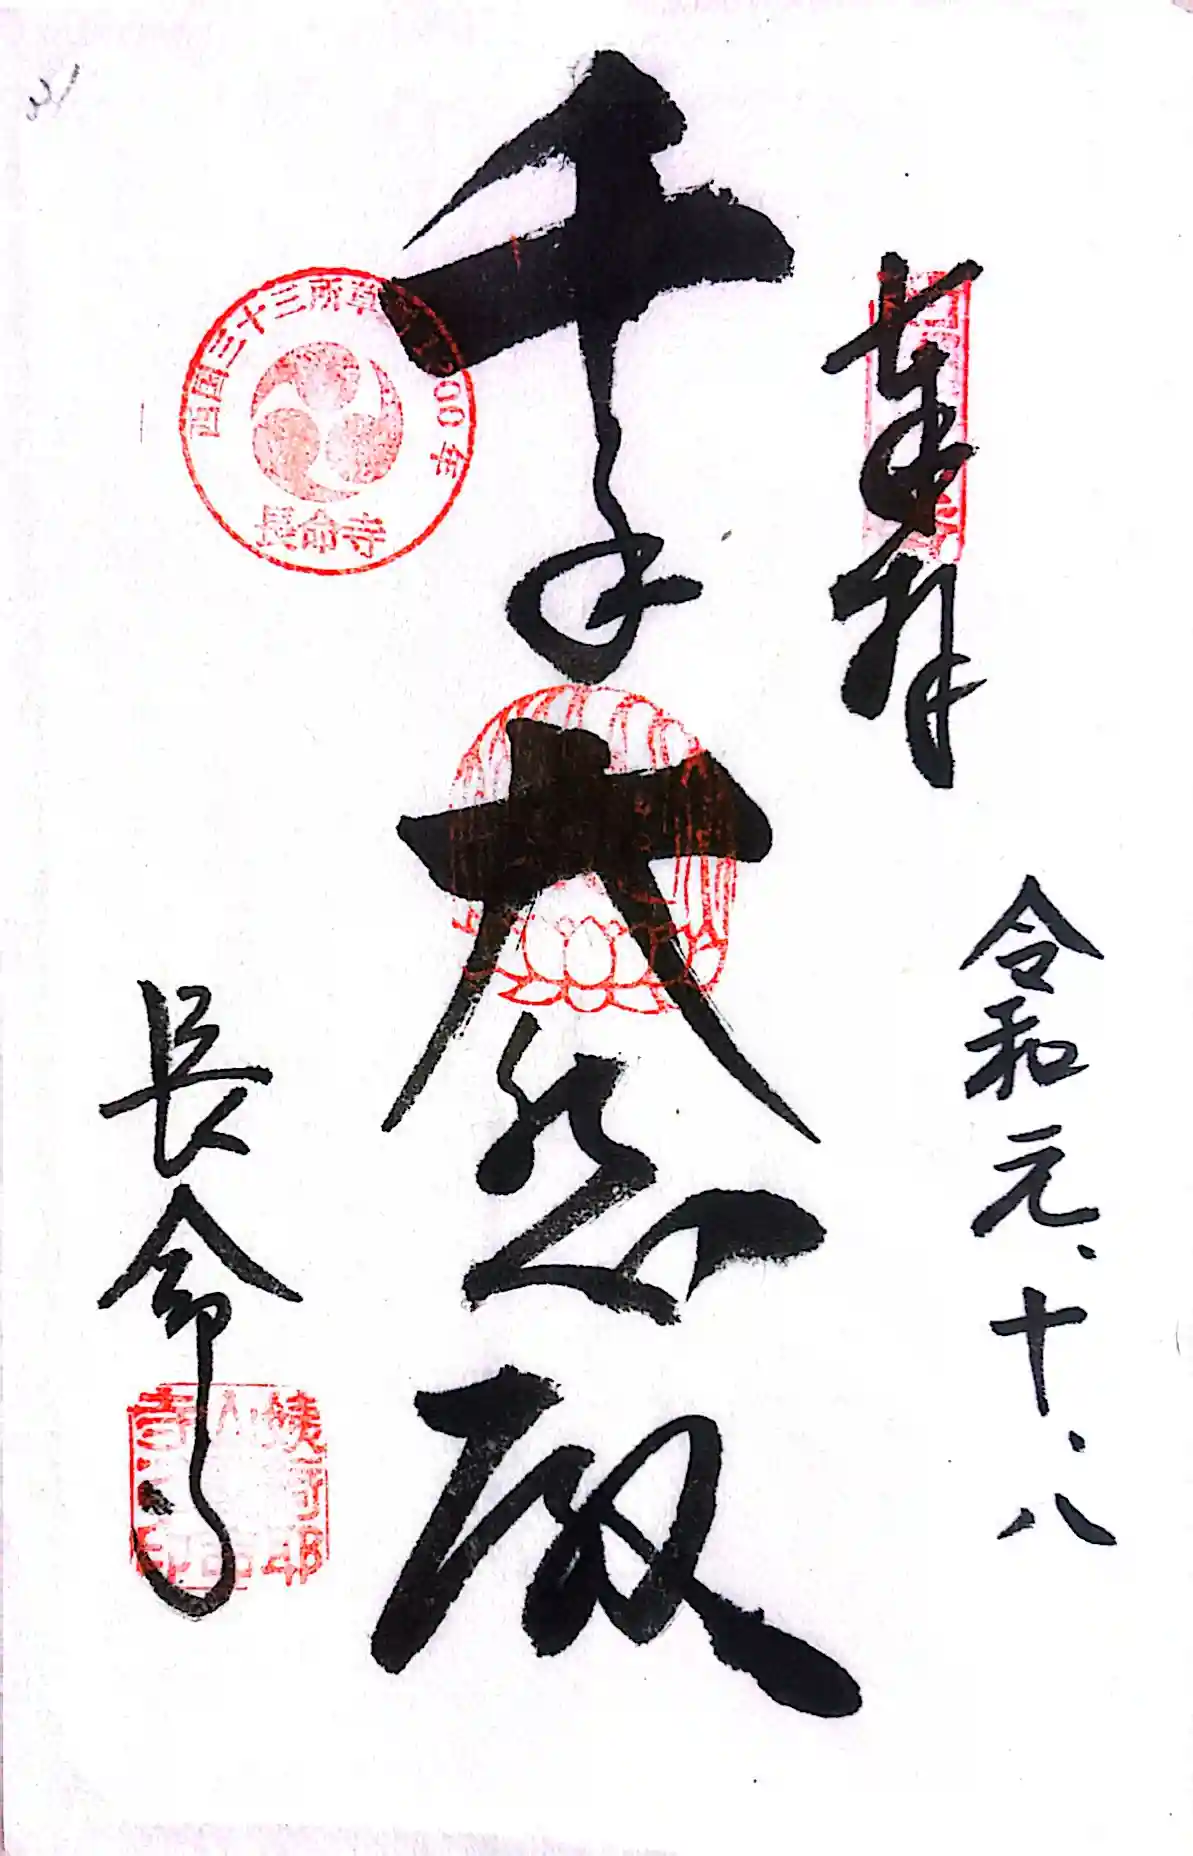 奉拝
令和元、十、八
千手大悲殿
西国三十三所草創1300年
長命寺
長命寺